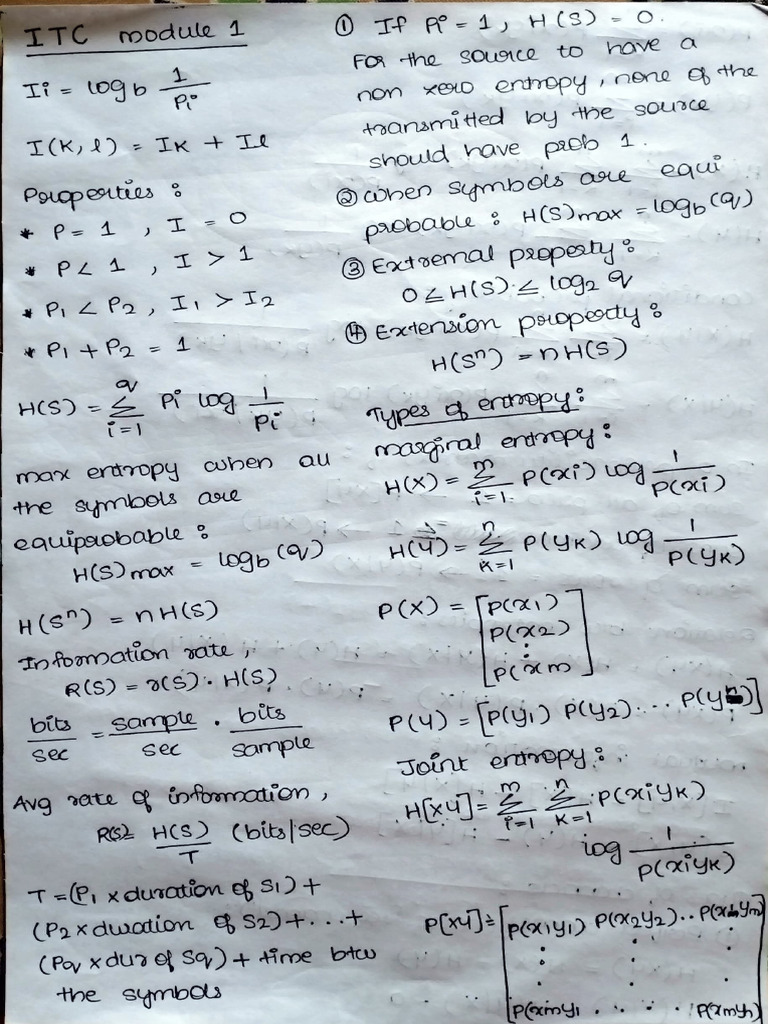 ITC module 1
Ii = log b 1/Pi
I(K, l) = IK + Il
Properties :
* P = 1 , I = 0
* P < 1 , I > 1
* P1 < P2 , I1 > I2
* P1 + P2 = 1
H(S) = q Σ i=1 Pi log 1/Pi
max entropy when all
the symbols are
equiprobable :
H(S)max = logb (q)
H(S^n) = n H(S)
Information rate,
R(S) = r(S) · H(S)
bits/sec = sample/sec · bits/sample
Avg rate of information,
R(S)= H(S)/T (bits/sec)
T = (P1 x duration of S1) +
(P2 x duration of S2) + ... +
(Pq x dur of Sq) + time btw
the symbols
① If Pi = 1, H(S) = 0.
For the source to have a
non zero entropy, none of the
transmitted by the source
should have prob 1.
② when symbols are equi
probable : H(S)max = logb(q)
③ Extremal property :
0 ≤ H(S) ≤ log2 q
④ Extension property :
H(S^n) = n H(S)
Types of entropy :
marginal entropy :
H(X) = m Σ i=1 P(xi) log 1/P(xi)
H(Y) = n Σ k=1 P(yk) log 1/P(yk)
P(X) = [P(x1)
P(x2)
:
P(xm]
P(Y) = [P(y1) P(y2) ... P(yn)]
Joint entropy :
H[XY] = m Σ i=1 n Σ k=1 P(xiyk)
log 1/P(xiyk)
P[XY] = [P(x1y1) P(x2y2) .. P(
: : :
P(xmy1 . . . . . P(xmyn)]